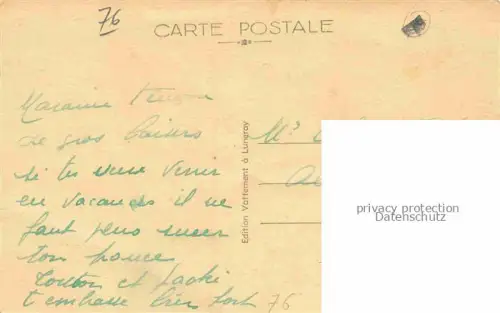 76
CARTE POSTALE
Maxime
de gros baisers
si tu veux venir
en vacances il ne
faut plus sucer
ton pouce
Tonton et
t'embrasse bien fort
76
Edition Vattement à Lungroy
privacy protection
Datenschutz